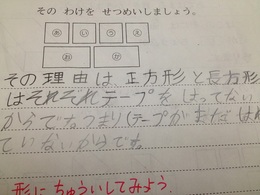 その わけを せつめいしましょう。
あ い う え
お か
その理由は正方形と長方形
はそれぞれテープをはってない
からですつまり(テープがまだはれ
ていないからです
形にちゅういしてみよう